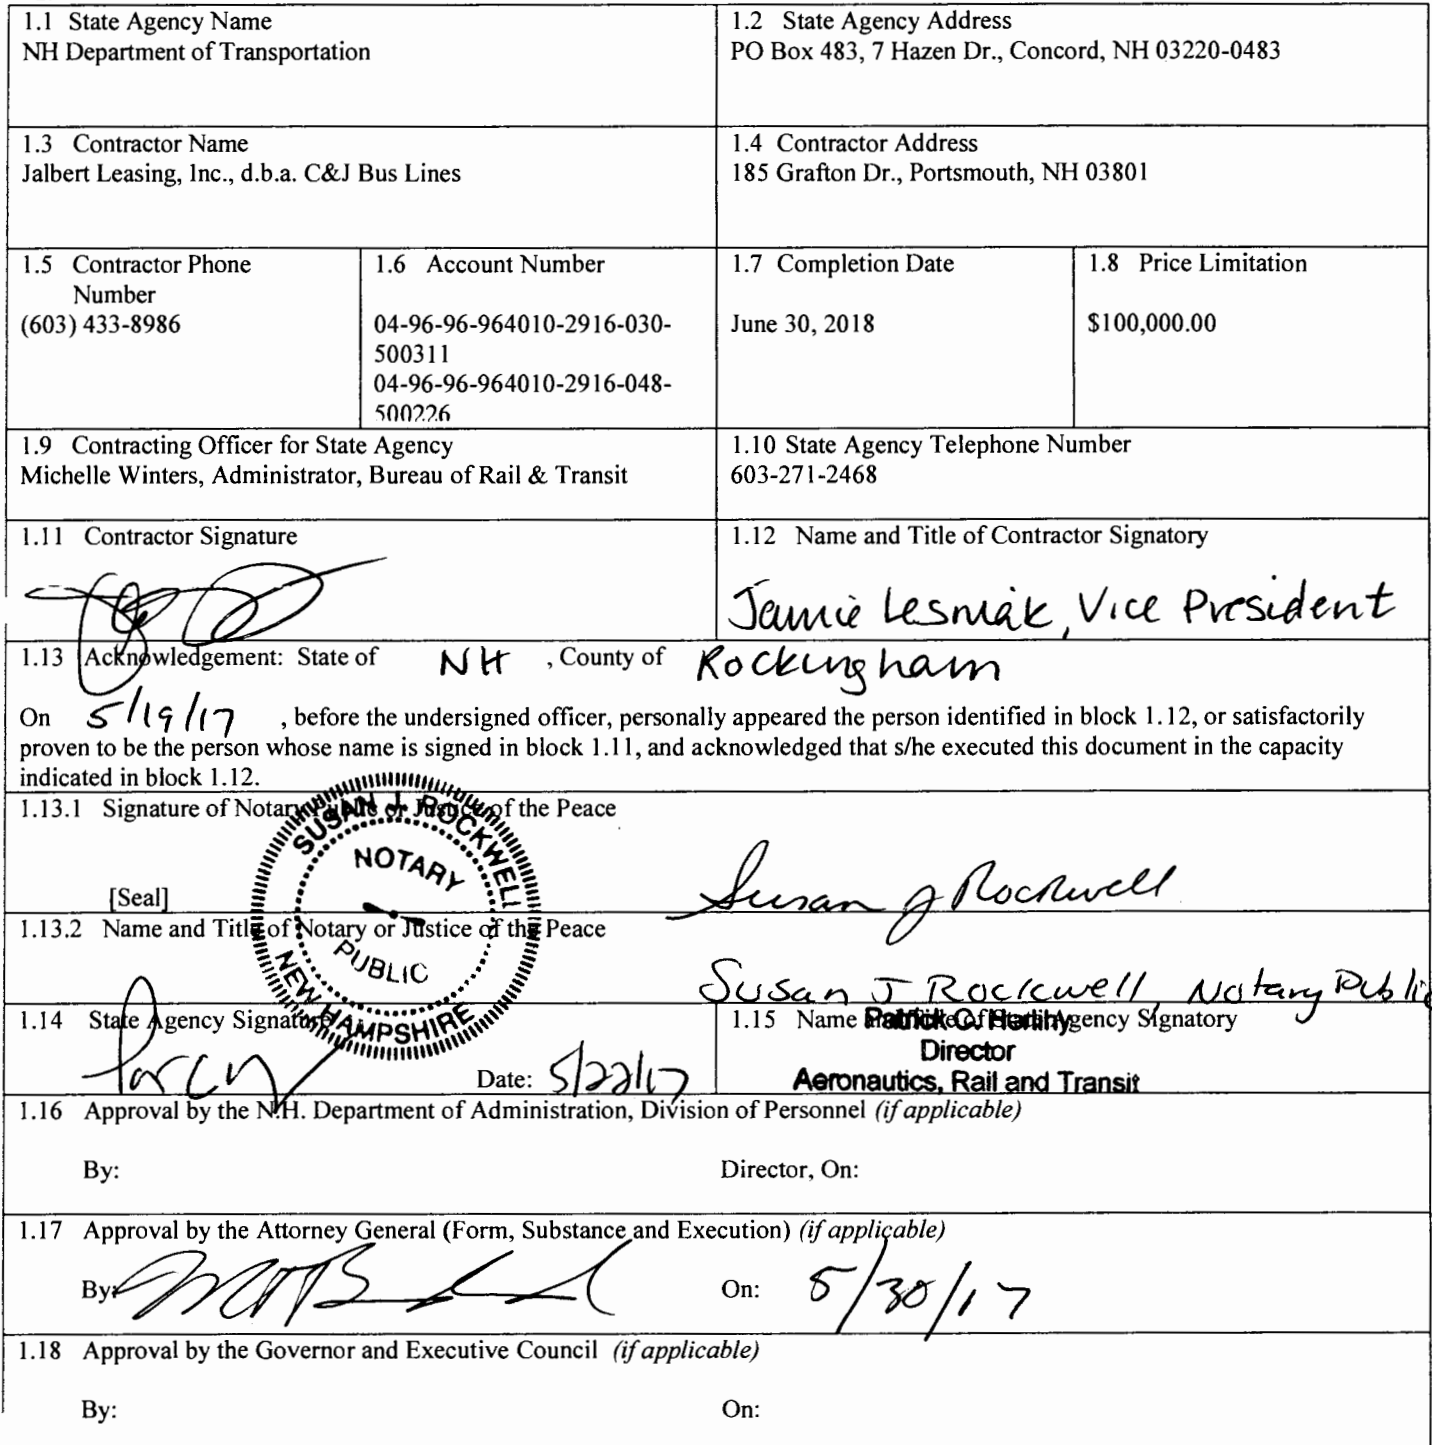 1.1 State Agency Name
NH Department of Transportation
1.2 State Agency Address
PO Box 483, 7 Hazen Dr., Concord, NH 03220-0483
1.3 Contractor Name
Jalbert Leasing, Inc., d.b.a. C&J Bus Lines
1.4 Contractor Address
185 Grafton Dr., Portsmouth, NH 03801
1.5 Contractor Phone
Number
(603) 433-8986
1.6 Account Number
04-96-96-964010-2916-030-
500311
04-96-96-964010-2916-048-
500226
1.7 Completion Date
June 30, 2018
1.8 Price Limitation
$100,000.00
1.9 Contracting Officer for State Agency
Michelle Winters, Administrator, Bureau of Rail & Transit
1.10 State Agency Telephone Number
603-271-2468
1.11 Contractor Signature
1.12 Name and Title of Contractor Signatory
Jamie Lesniak, Vice President
1.13 Acknowledgement: State of NH , County of Rockingham
On 5/19/17 , before the undersigned officer, personally appeared the person identified in block 1.12, or satisfactorily
proven to be the person whose name is signed in block 1.11, and acknowledged that s/he executed this document in the capacity
indicated in block 1.12.
1.13.1 Signature of Notary Public or Justice of the Peace
SUSAN J. ROCKWELL
NOTARY
PUBLIC
NEW HAMPSHIRE
[Seal]
Susan J Rockwell
1.13.2 Name and Title of Notary or Justice of the Peace
Susan J Rockwell, Notary Public
1.14 State Agency Signature
Date: 5/22/17
1.15 Name and Title of State Agency Signatory
Patrick C. Herlihy
Director
Aeronautics, Rail and Transit
1.16 Approval by the N.H. Department of Administration, Division of Personnel (if applicable)
By:
Director, On:
1.17 Approval by the Attorney General (Form, Substance and Execution) (if applicable)
By:
On: 5/30/17
1.18 Approval by the Governor and Executive Council (if applicable)
By:
On: